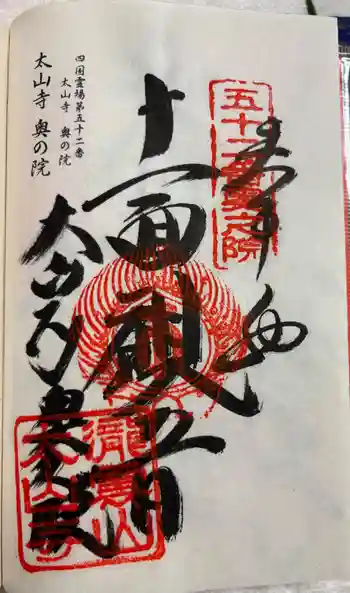 五十二番奥之院
奉拝
十一面観音
太山寺奥の院
瀧雲山
太山寺
四国霊場第五十二番
太山寺 奥の院
太山寺 奥の院